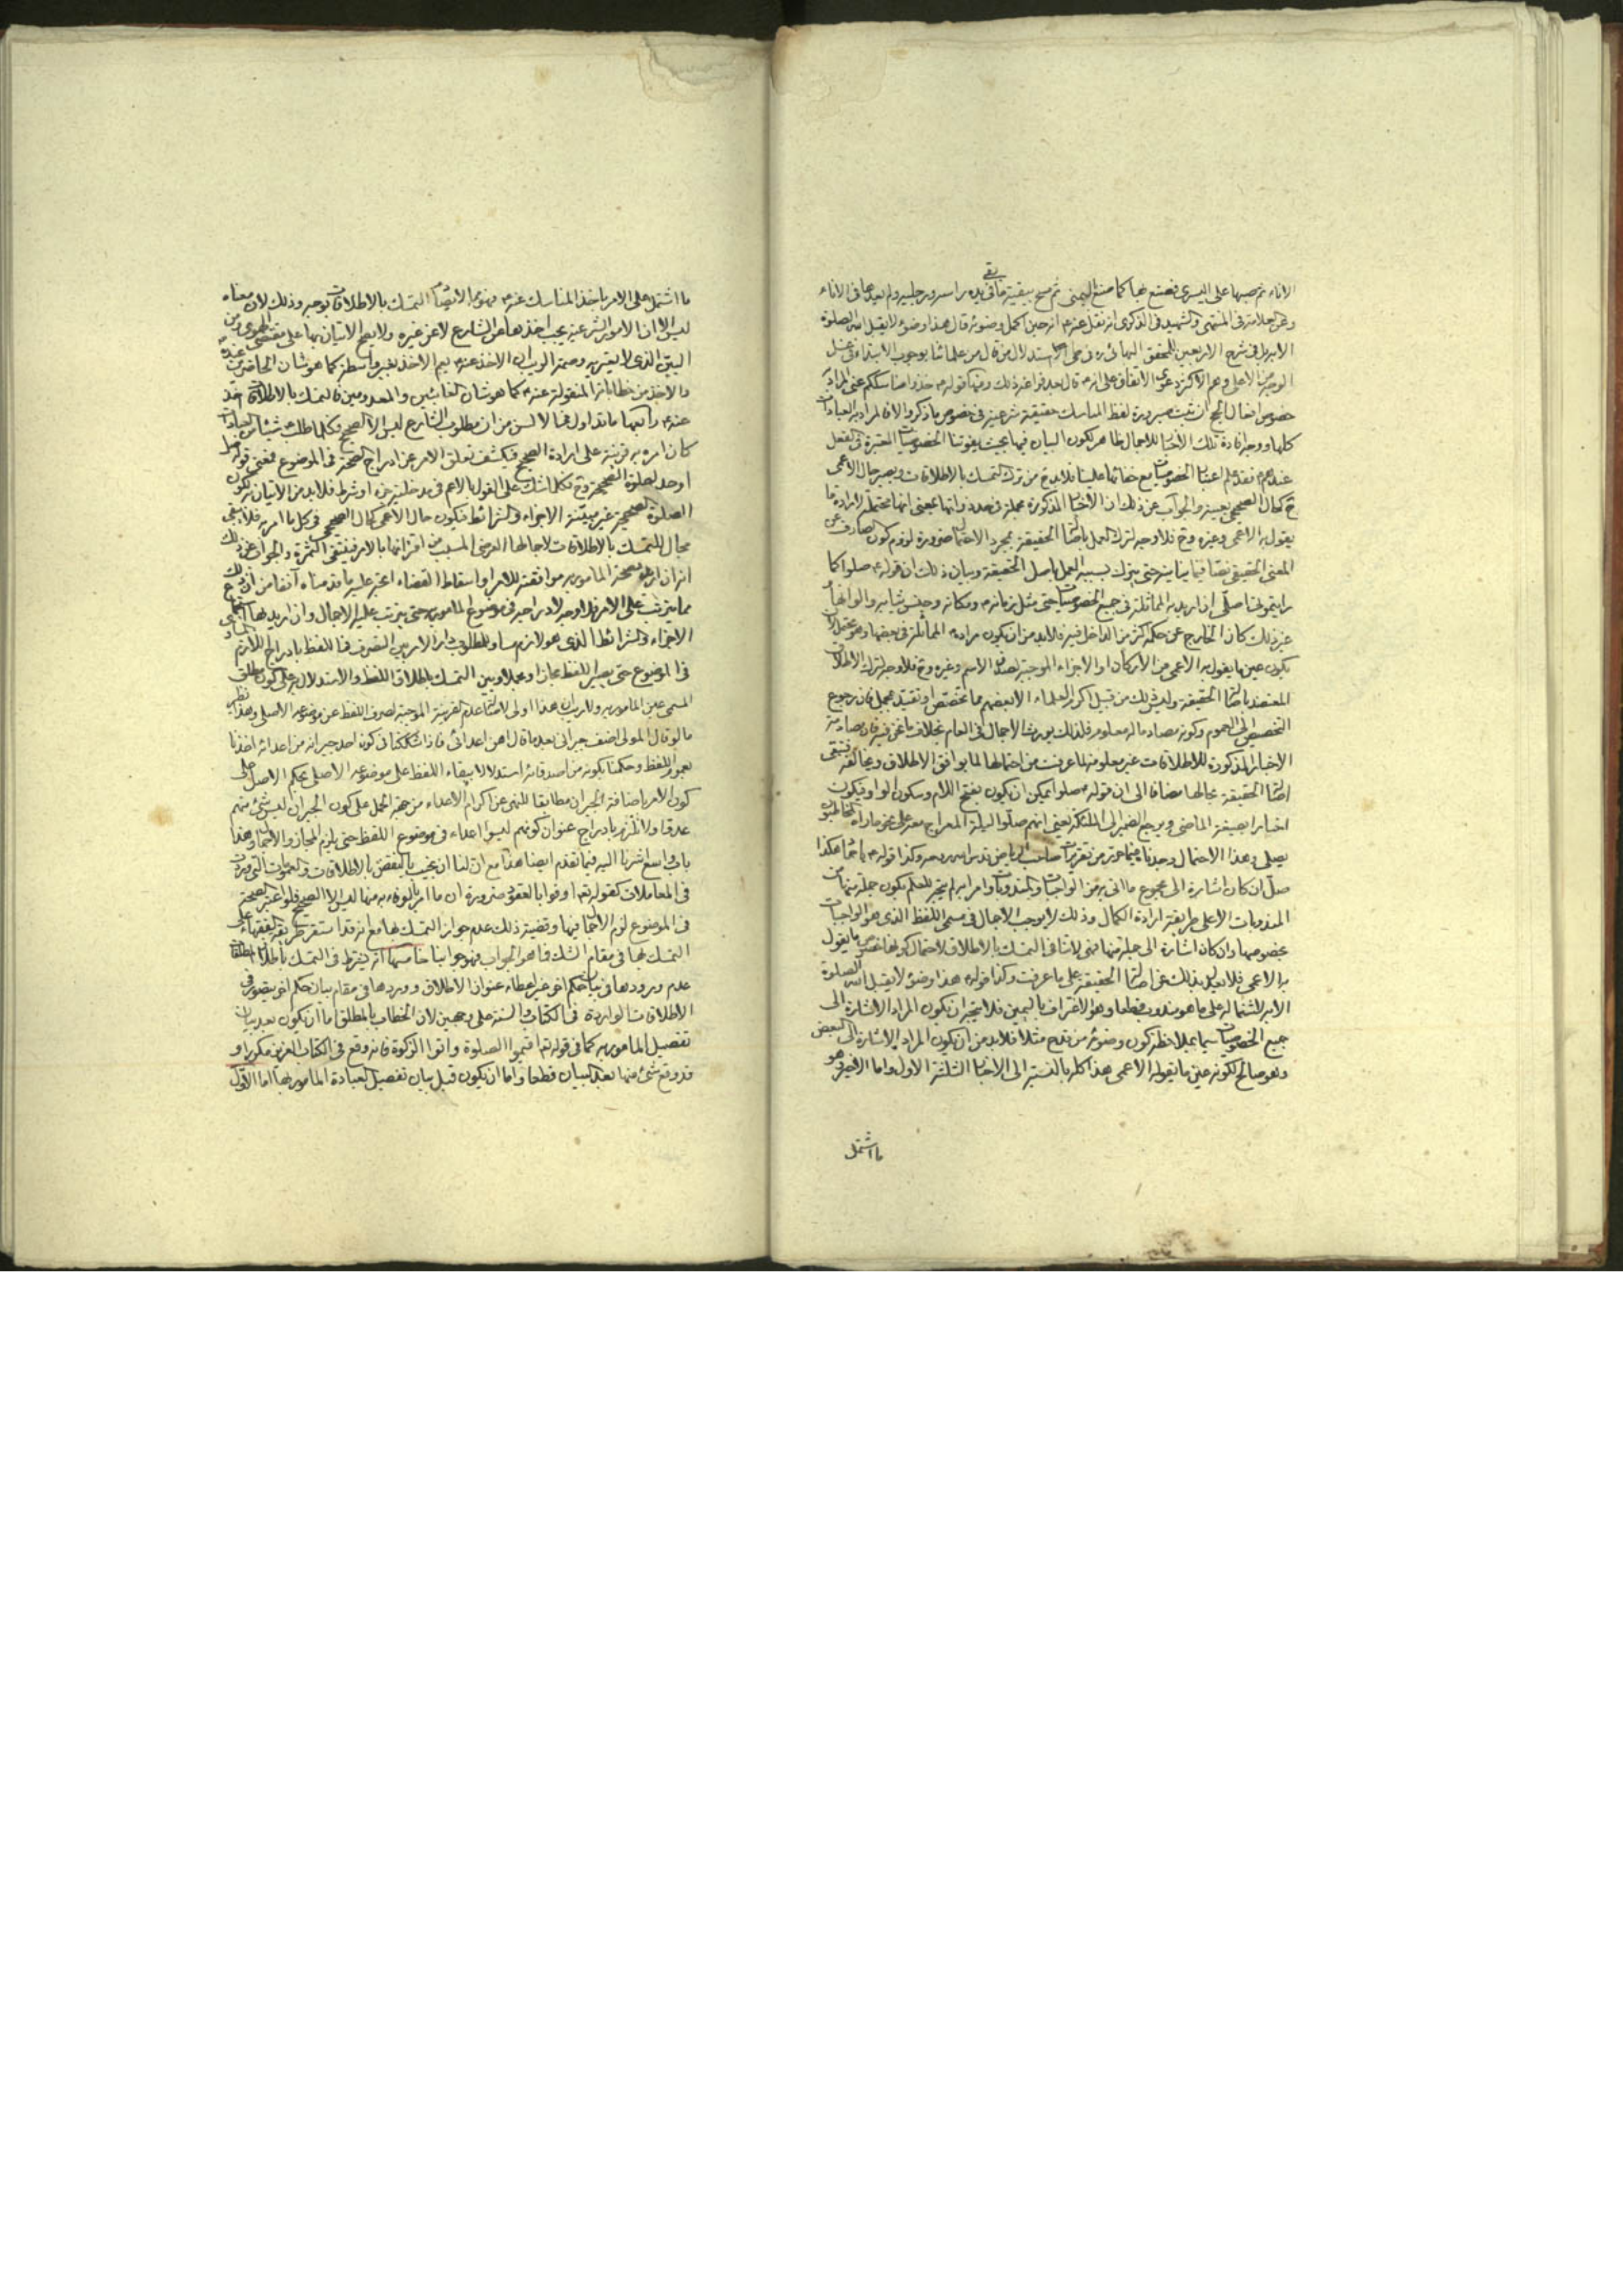 الاناء ثم صبها على اليسرى فصنع بها كما صنع باليمنى ثم مسح ببقية ما بقي في يديه راسه ورجليه ولم يعدهما في الاناء
وعن العلامة في المنتهى والشهيد في الذكرى انه نقل عنه انه حين اكمل وضوئه قال هذا وضوء لا يقبل الله الصلوة
الا به وفي شرح الاربعين للمحقق البهائي ره في استدلال من قال من علمائنا بوجوب الابتداء في غسل
الوجه من الاعلى وعن الاكثر دعوى الاتفاق على انه قال بعد فراغه ذلك ومنها قوله خذوا مناسككم عني المراد
خصوص افعال الحج ان ثبت صيرورة لفظ المناسك حقيقة شرعية في خصوص ما ذكر والا فالمراد به العبادات
كلها ووجه افادة تلك الاخبار للاجمال ظاهر لكون البيان فيها بحيث يفوتنا الخصوصيات المعتبرة في الفعل
عندهم فقد علم اعتبار الخصوصيات مع خفائها علينا فلابد ح من ترك التمسك بالاطلاقات ويصير حال الاعمى
ح كحال الصحيحي بعينه والجواب عن ذلك ان الاخبار المذكورة مجملة في حد ذواتها بمعنى انها محتملة لارادة ما
يقول به الاعمى وغيره وح فلا وجه لترك العمل باصالة الحقيقة بمجرد الاحتمال ضرورة لزوم كون الصارف عن
المعنى الحقيقي نصا فيما يباينه حتى يترك بسببه العمل باصل الحقيقة وبيان ذلك ان قوله صلوا كما
رايتموني اصلي ان اريد به المماثلة في جميع الخصوصيات حتى مثل زمانه ومكانه وجنس ثيابه والوانها
غير ذلك كان الخارج عن حكمه اكثر من الداخل فيه فلابد من ان يكون مراده المماثلة في بعضها وهو يحتمل ان
يكون عين ما يقول به الاعمى من الاركان او الاجزاء الموجبة لصدق الاسم وغيره وح فلا وجه لترك الاطلاق
المعتضد باصالة الحقيقة وليس ذلك من قبيل اكرم العلماء الا بعضهم مما تخصص او تقيد بمجمل فان رجوع
التخصيص الى العموم وكونه مصادما له معلوم فلذلك يورث الاجمال في العام بخلاف ما نحن فيه فان مصادمة
الاخبار المذكورة للاطلاقات غير معلومة لما عرفت من احتمالها لما يوافق الاطلاق ويخالفه فتبقى
اصالة الحقيقة بحالها مضافا الى ان قوله صلوا يمكن ان يكون بفتح اللام وسكون الواو فيكون
اخبارا بصيغة الماضي ويرجع الضمير الى الملئكة يعني انهم صلوا ليلة المعراج معه على نحو ما راه المخاطبون
يصلي وهذا الاحتمال وجدناه فيما حرر من تقريرات صاحب الرياض قدس سره وكذا قوله يا حماد هكذا
صل ان كان اشارة الى مجموع ما اتى به من الواجبات والمندوبات وامر ابراهيم بخير للعلم بكون جملة منها من
المندوبات الا على طريقة ارادة الكمال وذلك لا يوجب الاجمال في مسمى اللفظ الذي هو الواجبات
بخصوصها وان كان اشارة الى جملة منها فهي لا تنافي التمسك بالاطلاق لاحتمال كونها خصوص ما يقول
به الاعمى فلا نعدل بذلك عن اصالة الحقيقة على ما عرفت وكذا قوله هذا وضوء لا يقبل الله الصلوة
الا به لاشتماله على ما هو مندوب قطعا وهو الاغتراف باليمين فلا يتجه ان يكون المراد الاشارة الى
جميع الخصوصيات سيما بملاحظة كون وضوئه من قدح مثلا فلابد من ان يكون المراد الاشارة الى البعض
وهو صالح لكونه عين ما يقوله الاعمى هذا كله بالنسبة الى الاخبار الثلثة الاول واما الاخير وهو
ما اشتمل
ما اشتمل على الامر باخذ المناسك عنه فهو مما لا ينافي التمسك بالاطلاقات بوجه وذلك لان معناه
ليس الا ان الامور الشرعية يجب اخذها عن الشارع لا عن غيره ولا يصح الاتيان بها على مقتضى الهوى ومن
البين الذي لا يعتريه وصمة الريب ان الاخذ عنه يعم الاخذ بغير واسطة كما هو شان الحاضرين عنده
والاخذ من خطاباته المنقولة عنه كما هو شان الغائبين والمعدومين فالتمسك بالاطلاق اخذ
عنه رابعها ما تداول في الالسن من ان مطلوب الشارع ليس الا الصحيح فكلما طلب شيئا من العبادات
كان امره به قرينة على ارادة الصحيح فيكشف تعلق الامر عن ادراج الصحة في الموضوع فمعنى قوله صل
اوجد الصلوة الصحيحة وح فكلما شك على القول بالاعم في مدخلية جزء او شرط فلابد من الاتيان به لكون
الصلوة الصحيحة غير مبينة الاجزاء والشرائط فيكون حال الاعمى كحال الصحيحي في كل ما امر به فلا يبقى
مجال للتمسك بالاطلاقات لاجمالها العرضي المسبب من اقترانها بالامر فينتفي الثمرة والجواب عن ذلك
انه ان اريد بصحة المامور به موافقته للامر او اسقاط القضاء اعتبر عليه ما قدمناه آنفا من ان ذلك
مما يترتب على الامر فلا وجه لادراجه في موضوع المامور به حتى يترتب عليه الاجمال وان اريد بها استجماع
الاجزاء والشرائط الذي هو لازم مساو للمطلوب دار الامر بين التصرف في اللفظ بادراج اللازم
في الموضوع حتى يصير اللفظ مجازا ومجملا وبين التمسك باطلاق اللفظ والاستدلال به على كون مطلق
المسمى عين المامور به ولا ريب ان هذا اولى لاصالة عدم القرينة الموجبة لصرف اللفظ عن موضوعه الاصلي وهذا نظير
ما لو قال المولى اضف جيراني بعد ما قال اهن اعدائي فاذا شككنا في كون احد جيرانه من اعدائه اخذنا
بعموم اللفظ وحكمنا بكونه من اصدقائه استدلالا ببقاء اللفظ على موضوعه الاصلي بحكم الاصل على
كون الامر باضافة الجيران مطابقا للنهي عن اكرام الاعداء من جهة الحمل على كون الجيران ليس شئ منهم
عدوا ولا نلتزم بادراج عنوان كونهم ليسوا اعداء في موضوع اللفظ حتى يلزم المجاز والاجمال وهذا
باب واسع اشرنا اليه فيما تقدم ايضا هذا مع ان لنا ان نجيب بالنقض بالاطلاقات والعمومات التي وردت
في المعاملات كقوله تعا اوفوا بالعقود ضرورة ان ما امر بالوفاء به منها ليس الا الصحيح فلو اعتبر الصحة
في الموضوع لزم الاجمال فيها وقضية ذلك عدم جواز التمسك بها مع انه قد استقر طريقة الفقهاء على
التمسك بها في مقام الشك فما هو الجواب فهو جوابنا خامسها انه يشترط في التمسك باطلاق المطلقات
عدم ورودها في بيان حكم اخر غير اعطاء عنوان الاطلاق وورودها في مقام بيان حكم اخر يتصور في
الاطلاقات الواردة في الكتاب والسنة على وجهين لان الخطاب بالمطلق اما ان يكون بعد بيان
تفصيل المامور به كما في قوله تعا اقيموا الصلوة واتوا الزكوة فانه وقع في الكتاب العزيز مكررا و
قد وقع شئ منها بعد البيان قطعا واما ان يكون قبل بيان تفصيل العبادة المامور بها اما الاول